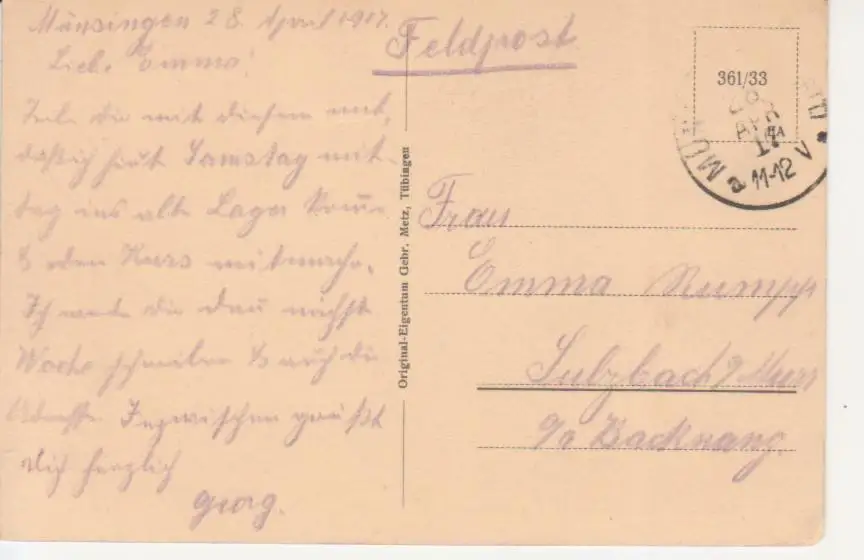 Münsingen 28 April 1917.
Lieb. Emma!
Teile dir mit diesem mit,
daß ich heut Samstag mit-
tag ins alte Lager komme
& den Kurs mitmache.
Ich werde dir dan nächste
Woche schreiben & auch die
Adresse. Inzwischen grüßt
dich herzlich
Georg.
Feldpost
Original-Eigentum Gebr. Metz, Tübingen
361/33
APR
17
11-12 V
Frau
Emma Rumpp
Sulzbach a/Murr
o/a Backnang.